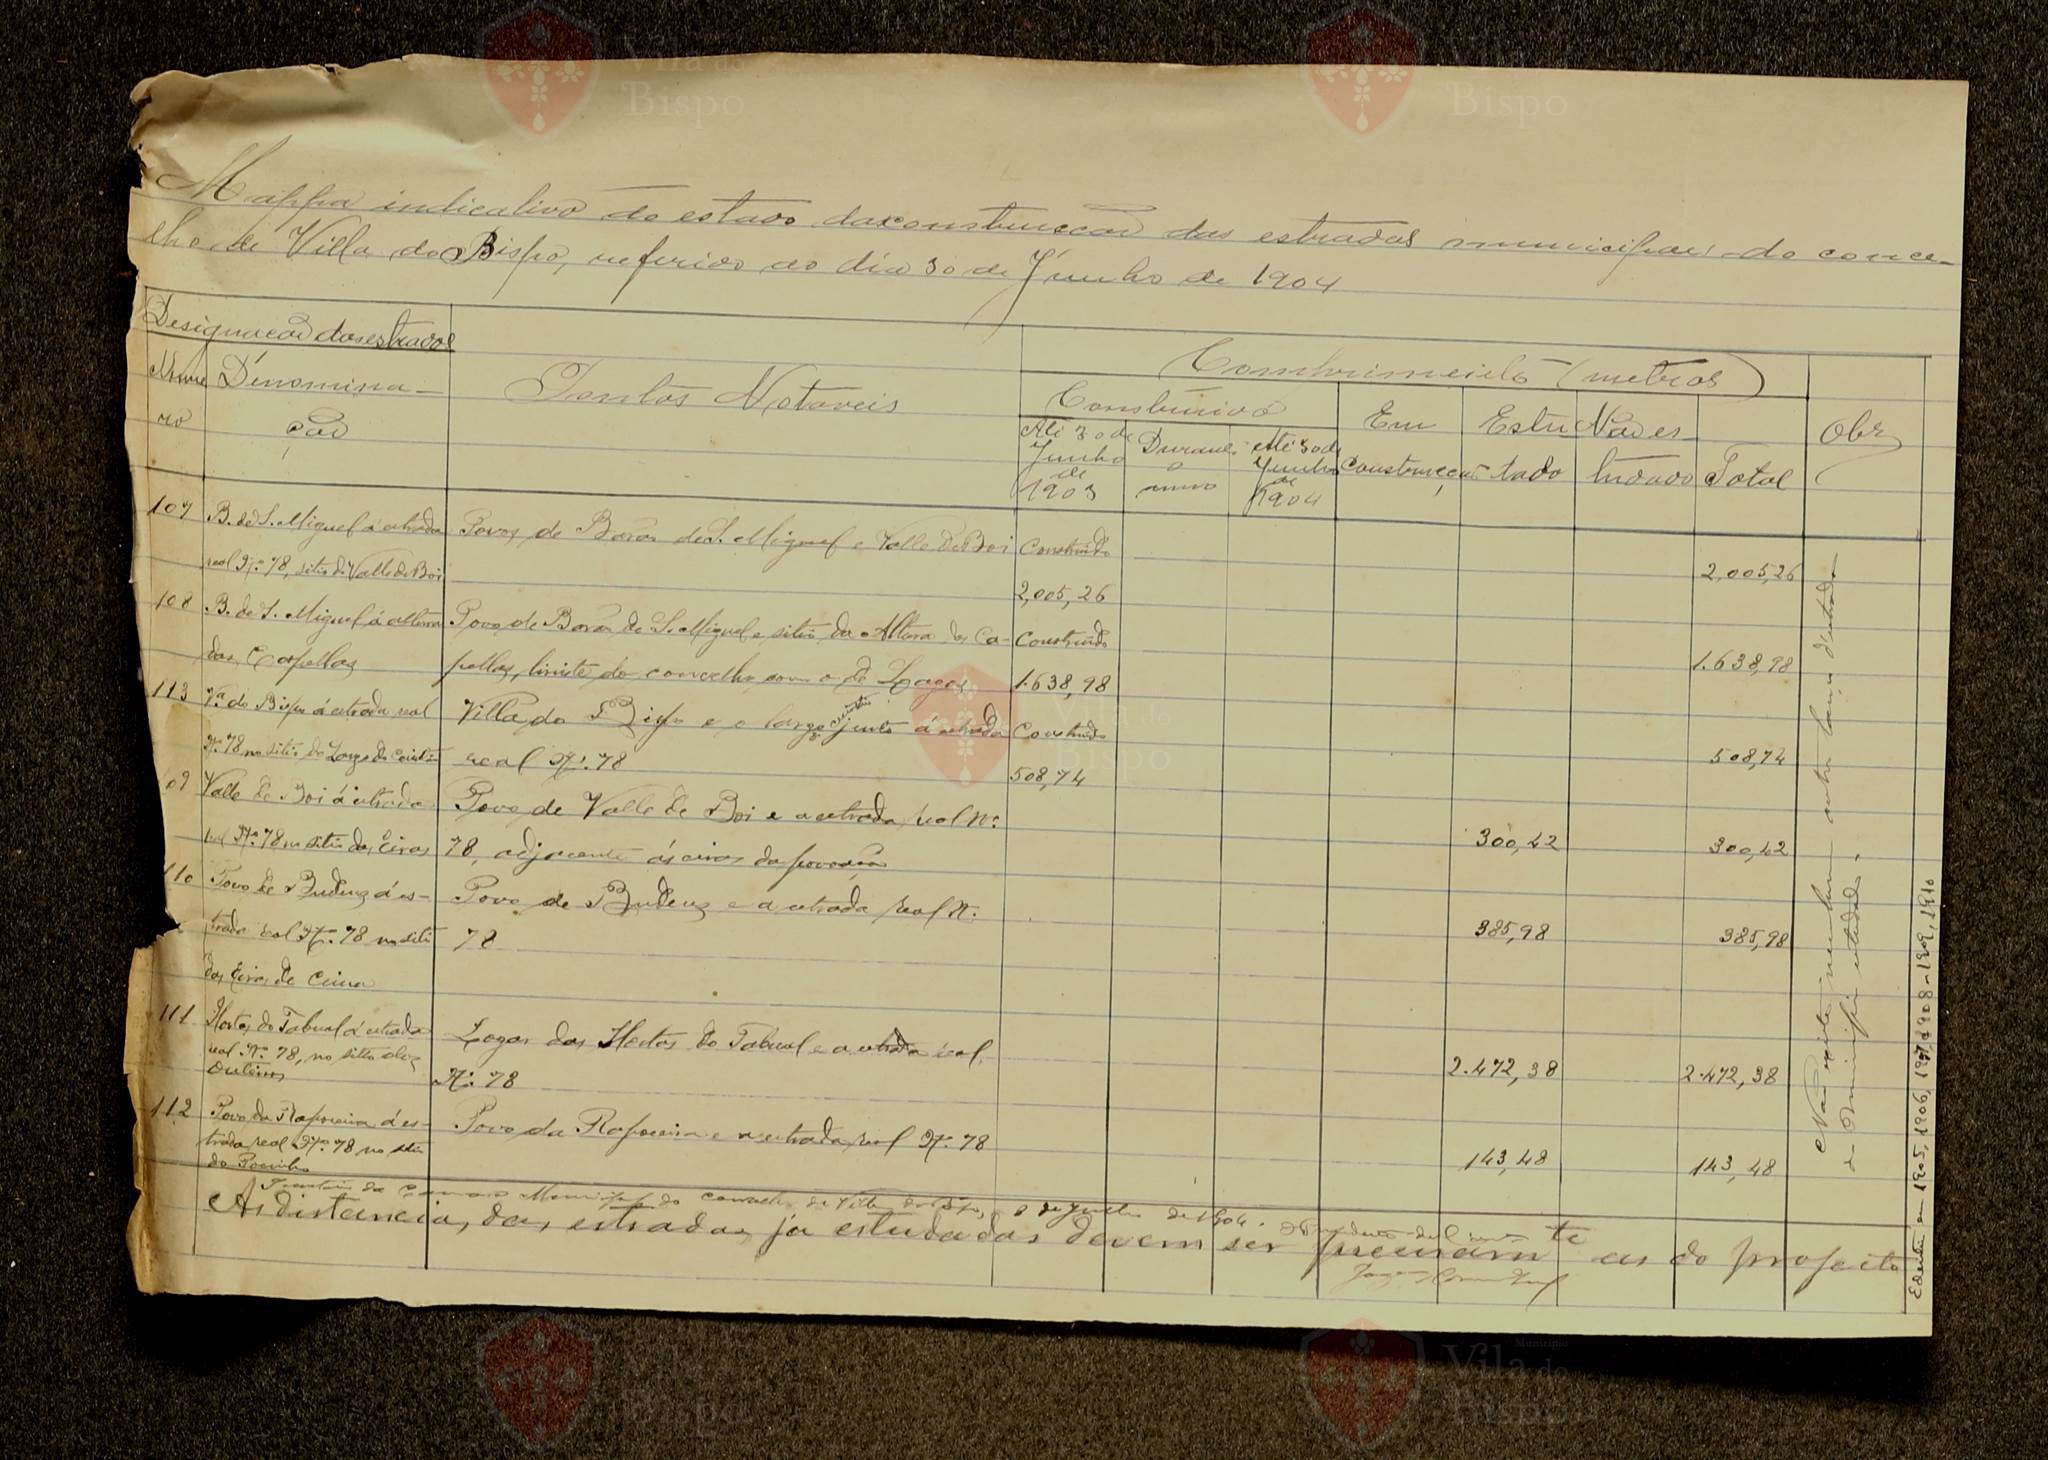 Mappa indicativo do estado da construcção das estradas municipaes do conce-
lho de Villa do Bispo, referido ao dia 30 de Junho de 1904
Designação das estradas
Nume
ro
Dinomina-
ção
Pontos Notaveis
Comprimento (metros)
Construido
Até 30 de
Junho
de
1903
Durante
o
anno
Até 30 de
Junho
de
1904
Em
construcção
Estu
tado
Não es-
tudado
Total
Obs
107
B. de S. Miguel á estrada
real Nº 78, sitio de Valle de Boi
Povos de Barão de S. Miguel e Valle de Boi
Construido
2,005,26
2,005,26
108
B. de S. Miguel á altura
das Capellas
Povo de Barão de S. Miguel e sitio da Altura das Ca-
pellas, limite do concelho com o de Lagos
Construido
1.638,98
1.638,98
113
Vª do Bispo á estrada real
Nº 78, no sitio do Largo do
Villa do Bispo e o largo junto á estrada
real Nº 78
Construido
508,74
508,74
109
Valle de Boi á estrada
real Nº 78 no sitio das Eiras
Povo de Valle de Boi e a estrada real Nº
78, adjacente ás eiras da povoação
300,42
300,42
110
Povo de Budens á es-
trada real Nº 78 no sitio
das Eiras de Cima
Povo de Budens e a estrada real Nº
78
385,98
385,98
111
Hortas do Tabual á estrada
real Nº 78, no sitio dos
Outeiros
Logar das Hortas do Tabual e a estrada real
Nº 78
2.472,38
2.472,38
112
Povo da Raposeira á es-
trada real Nº 78 no sitio
do Pocinho
Povo da Raposeira e a estrada real Nº 78
143,48
143,48
Não existe nenhum outro lanço d'estrada
do Municipio estudado.
Secretaria da Camara Municipal do Concelho de Villa do Bispo, de Julho de 1904.
O Presidente
As distancias, das estradas já estudadas devem ser precisamte as do projecto
Edentico em 1905, 1906, 1907, 1908-1909, 1910
Vila do
Bispo
Vila do
Bispo
Vila do
Bispo
Vila do
Bispo
Município
Vila do
Bispo